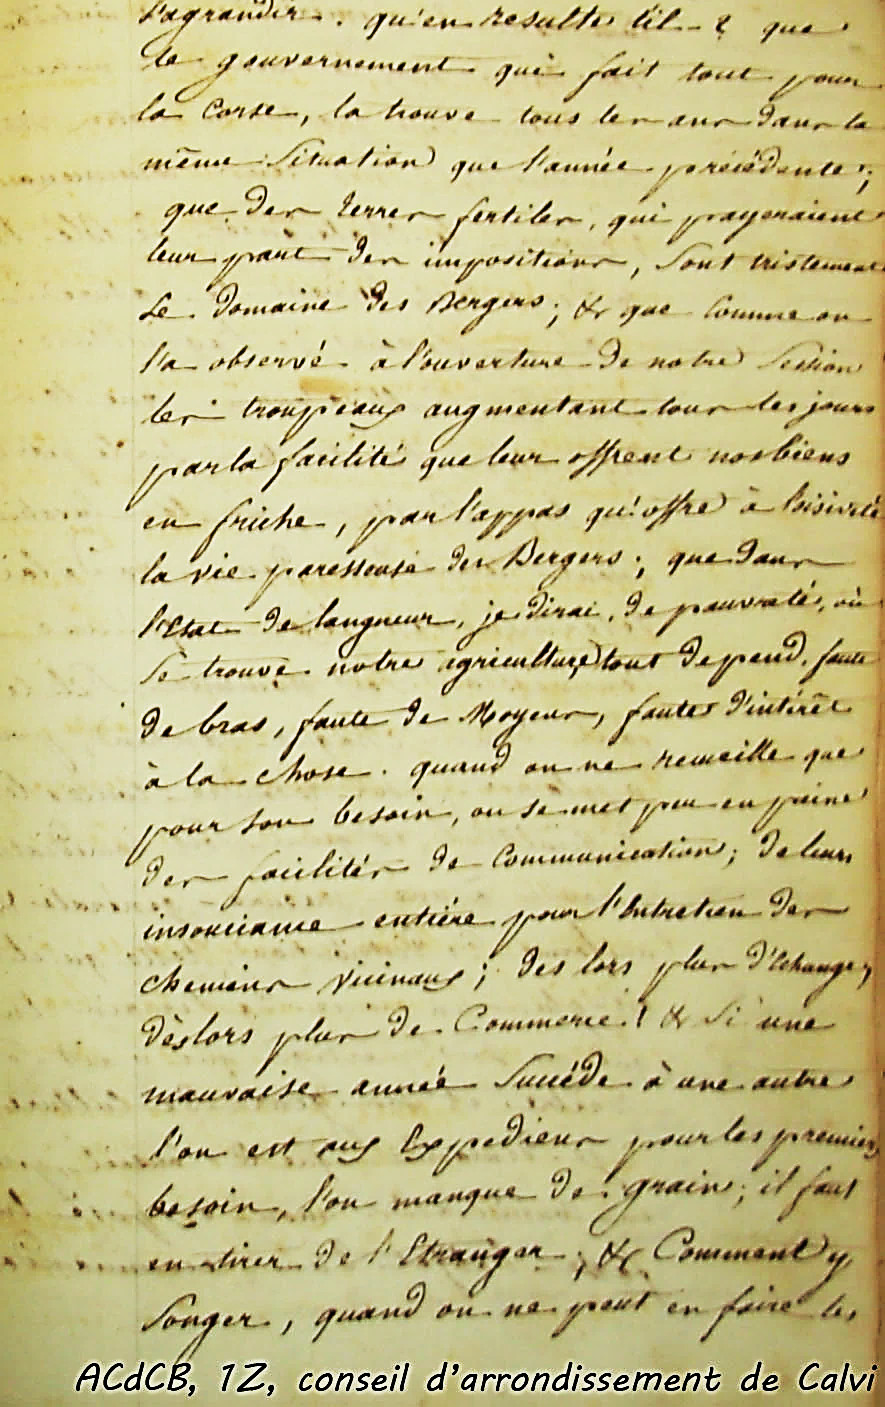 s'agrandir. qu'en resulte t'il - ? que
le gouvernement qui fait tout pour
la Corse, la trouve tous les ans dans la
même Situation que l'année précédente ;
que des terres fertiles, qui payeraient
leur part des impositions, Sont tristement
Le Domaine des Bergers ; & que Comme on
l'a observé à l'ouverture de notre Session
les troupeaux augmentant tous les jours
par la facilité que leur offrent nos biens
en friche, par l'appas qu'offre à l'oisiveté
la vie paresseuse des Bergers ; que dans
l'Etat de langueur, je dirai, de pauvreté, où
Se trouve notre agriculture, tout depend, faute
de bras, faute de Moyens, faute d'intérêt
à la chose. quand on ne recueille que
pour son besoin, on se met peu en peine
des facilités de Communication ; de leur
insouciance entière pour l'Entretien des
chemins vicinaux ; des lors plus d'Echange,
dès lors plus de Commerce ! & Si une
mauvaise année Succéde à une autre
l'on est aux Expediens pour les premiers
besoins, l'on manque de grains ; il faut
en tirer de l'Etranger ; & Comment y
Songer, quand on ne peut en faire les
ACdCB, 1Z, conseil d'arrondissement de Calvi